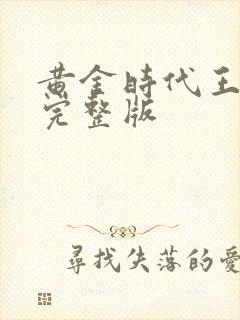 黃金時代王
完整版
尋找失落的愛